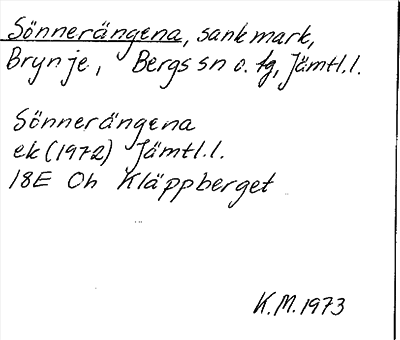 Sönnerängena, sank mark,
Brynje, Bergs sn o. fg, Jämtl.l.
Sönnerängena
ek (1972) Jämtl.l.
18E Oh Kläppberget
K.M. 1973